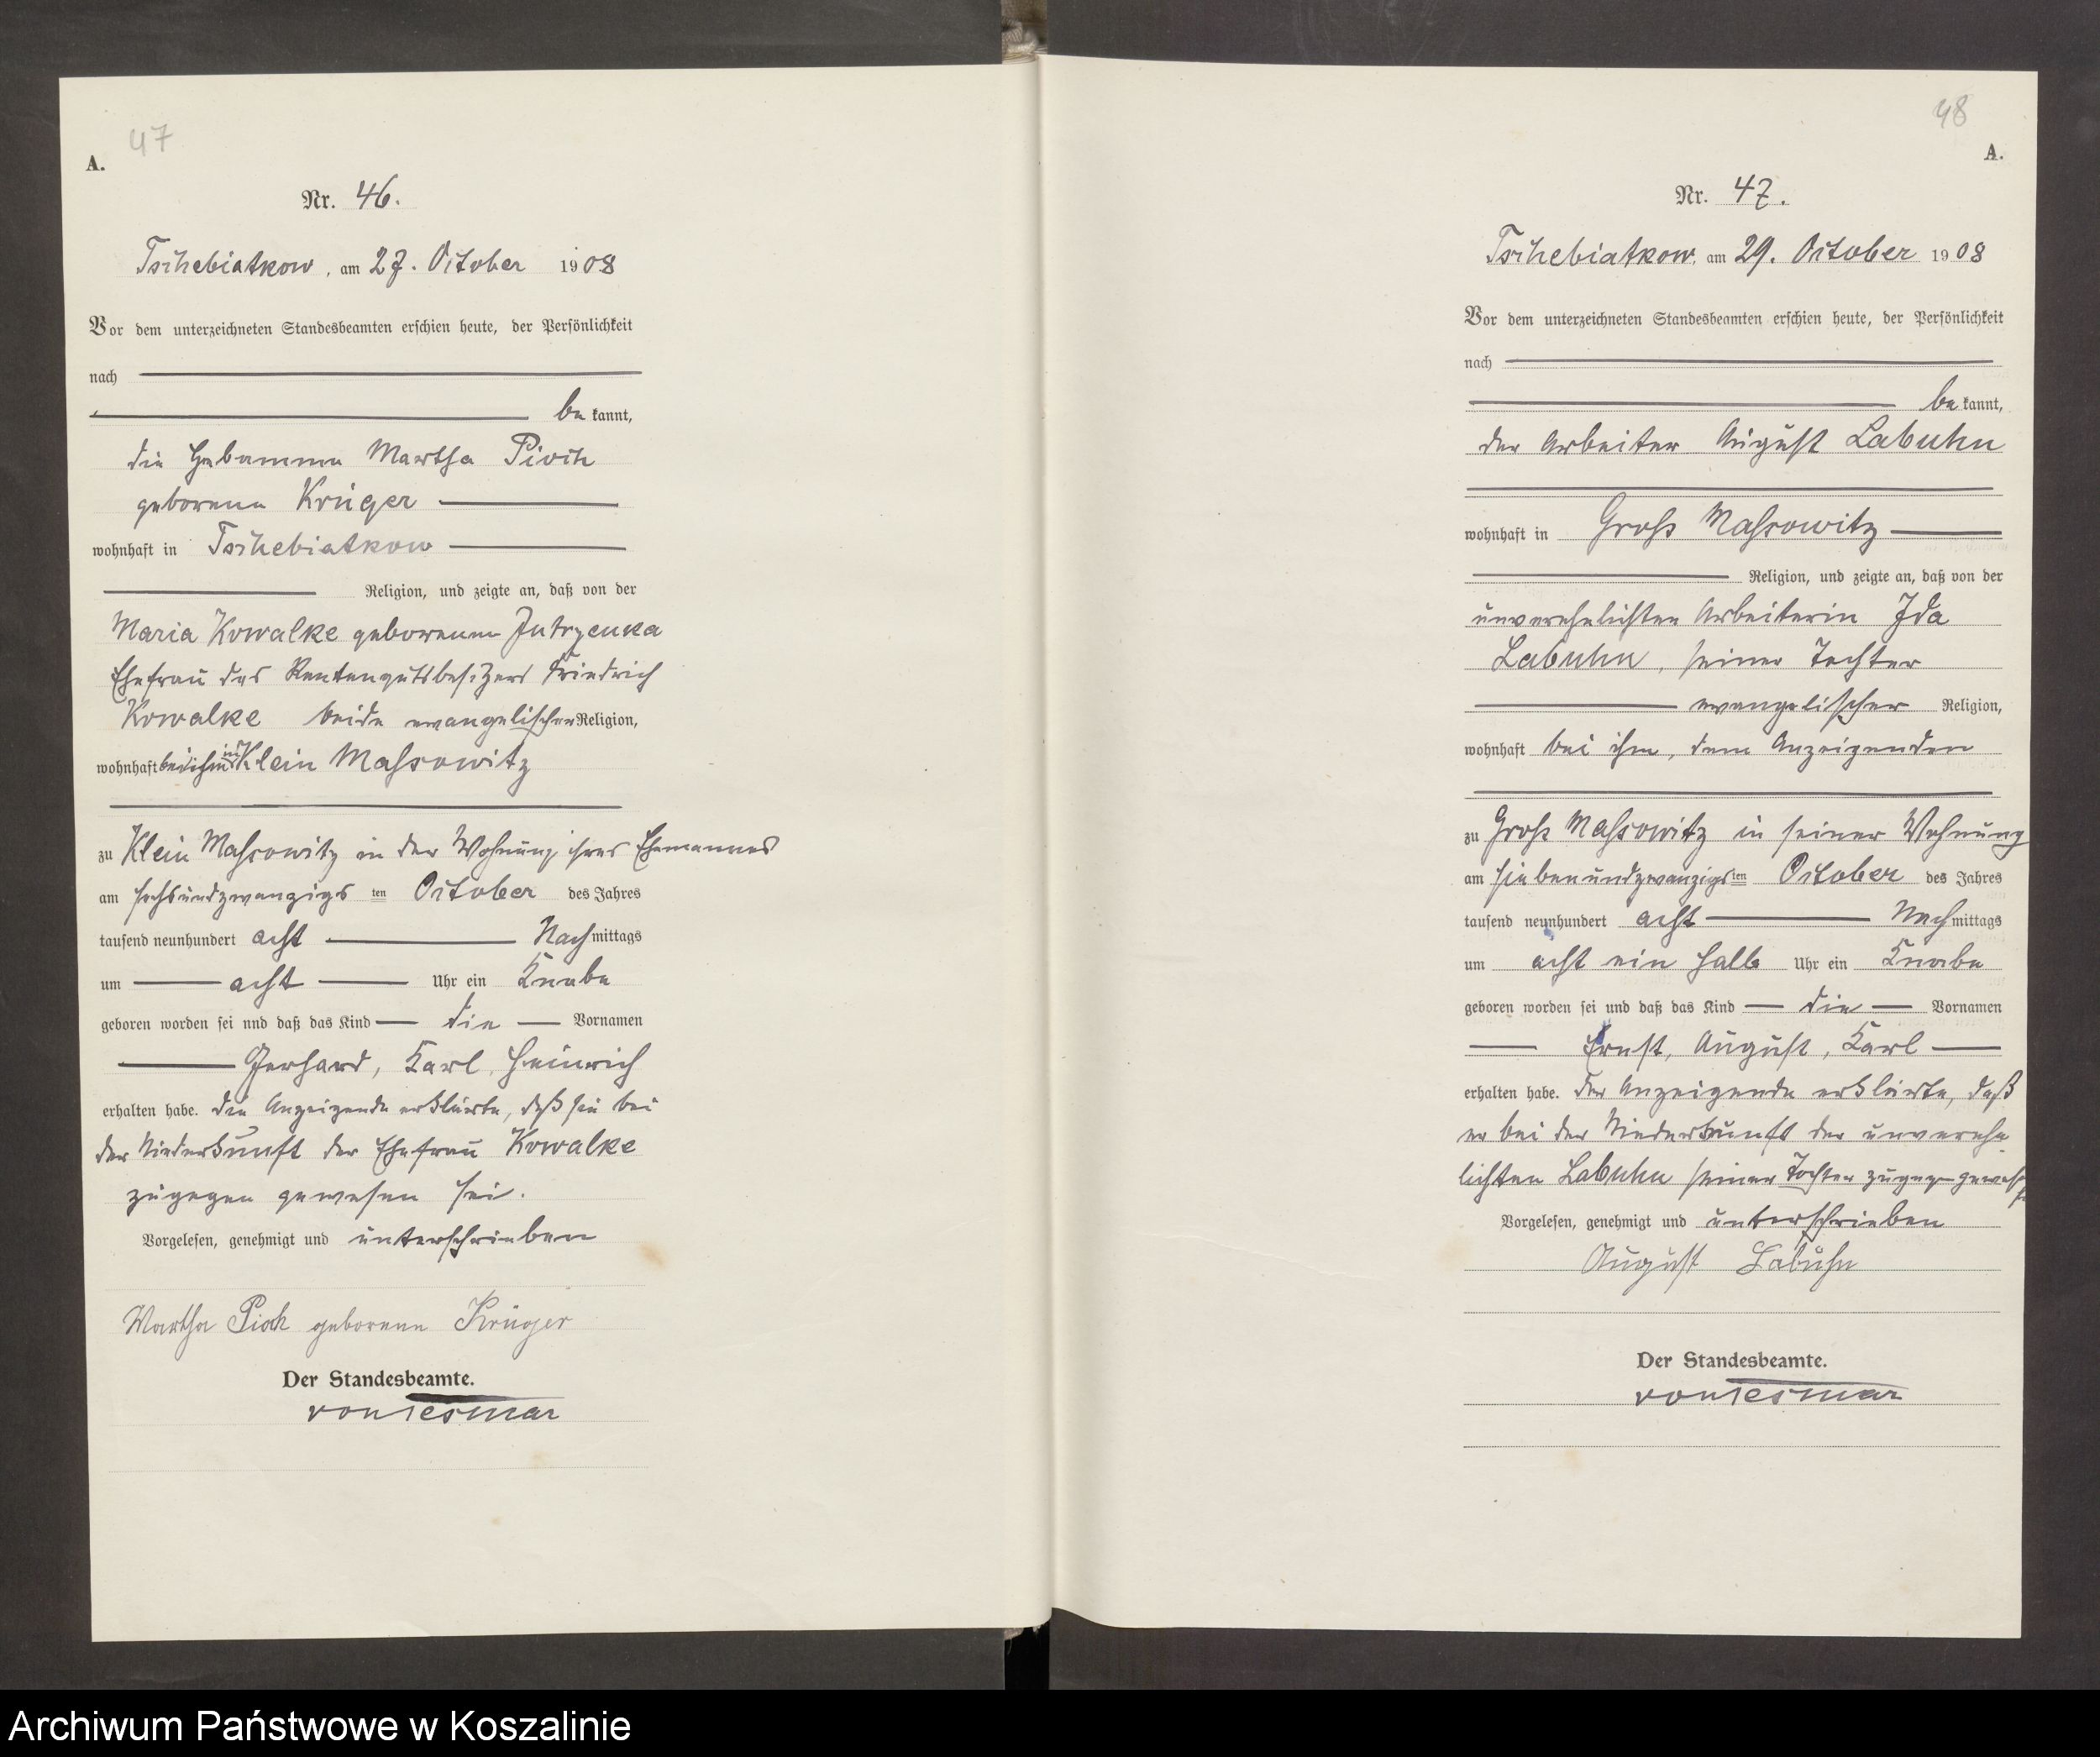 47
A.
Nr. 46.
Tschebiatkow, am 27. October 1908
Vor dem unterzeichneten Standesbeamten erschien heute, der Persönlichkeit
nach
be kannt,
die Hebamme Martha Pioch
geborene Krüger
wohnhaft in Tschebiatkow
Religion, und zeigte an, daß von der
Maria Kowalke geborenen Jutrzenka
Ehefrau des Rentengutsbesitzers Friedrich
Kowalke beide evangelischer Religion,
wohnhaft bei ihm in Klein Massowitz
zu Klein Massowitz in der Wohnung ihres Ehemannes
am sechsundzwanzigs ten October des Jahres
tausend neunhundert acht Nachmittags
um acht Uhr ein Knabe
geboren worden sei und daß das Kind die Vornamen
Gerhard, Karl, Heinrich
erhalten habe. Die Anzeigende erklärte, daß sie bei
der Niederkunft der Ehefrau Kowalke
zugegen gewesen sei.
Vorgelesen, genehmigt und unterschrieben
Martha Pioch geborene Krüger
Der Standesbeamte.
von Tesmar
48
A.
Nr. 47.
Tschebiatkow, am 29. October 1908
Vor dem unterzeichneten Standesbeamten erschien heute, der Persönlichkeit
nach
be kannt,
der Arbeiter August Labuhn
wohnhaft in Gross Massowitz
Religion, und zeigte an, daß von der
unverehelichten Arbeiterin Ida
Labuhn, seiner Tochter
evangelischer Religion,
wohnhaft bei ihm, dem Anzeigenden
zu Gross Massowitz in seiner Wohnung
am siebenundzwanzigs ten October des Jahres
tausend neunhundert acht Nachmittags
um acht ein halb Uhr ein Knabe
geboren worden sei und daß das Kind die Vornamen
Ernst, August, Karl
erhalten habe. Der Anzeigende erklärte, daß
er bei der Niederkunft der unverehe-
lichten Labuhn seiner Tochter zugegen gewesen
Vorgelesen, genehmigt und unterschrieben
August Labuhn
Der Standesbeamte.
von Tesmar
Archiwum Państwowe w Koszalinie